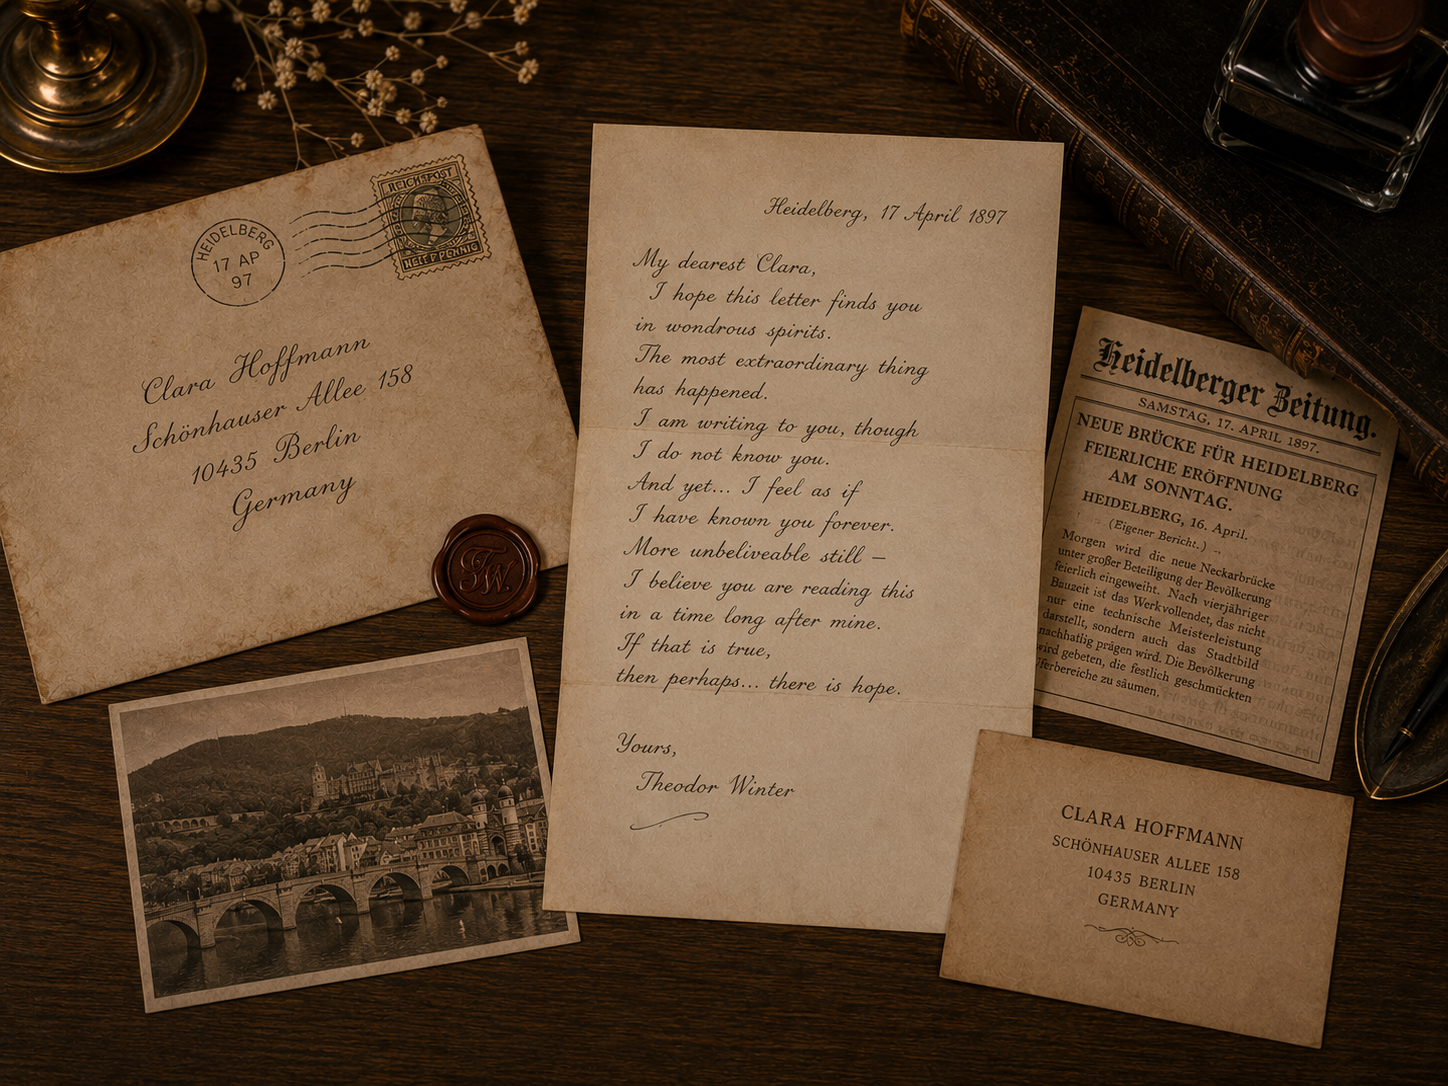 HEIDELBERG
17 AP
97
REICHSPOST
Clara Hoffmann
Schönhauser Allee 158
10435 Berlin
Germany
TW.
Heidelberg, 17 April 1897
My dearest Clara,
I hope this letter finds you
in wondrous spirits.
The most extraordinary thing
has happened.
I am writing to you, though
I do not know you.
And yet... I feel as if
I have known you forever.
More unbeliveable still –
I believe you are reading this
in a time long after mine.
If that is true,
then perhaps... there is hope.
Yours,
Theodor Winter
Heidelberger Zeitung.
SAMSTAG, 17. APRIL 1897.
NEUE BRÜCKE FÜR HEIDELBERG
FEIERLICHE ERÖFFNUNG
AM SONNTAG.
HEIDELBERG, 16. April.
(Eigener Bericht.)
Morgen wird die neue Neckarbrücke
unter großer Beteiligung der Bevölkerung
feierlich eingeweiht. Nach vierjähriger
Bauzeit ist das Werkvollendet, das nicht
nur eine technische Meisterleistung
darstellt, sondern auch das Stadtbild
prägen wird. Die Bevölkerung
wird gebeten, die festlich geschmückten
zu säumen.
CLARA HOFFMANN
SCHÖNHAUSER ALLEE 158
10435 BERLIN
GERMANY